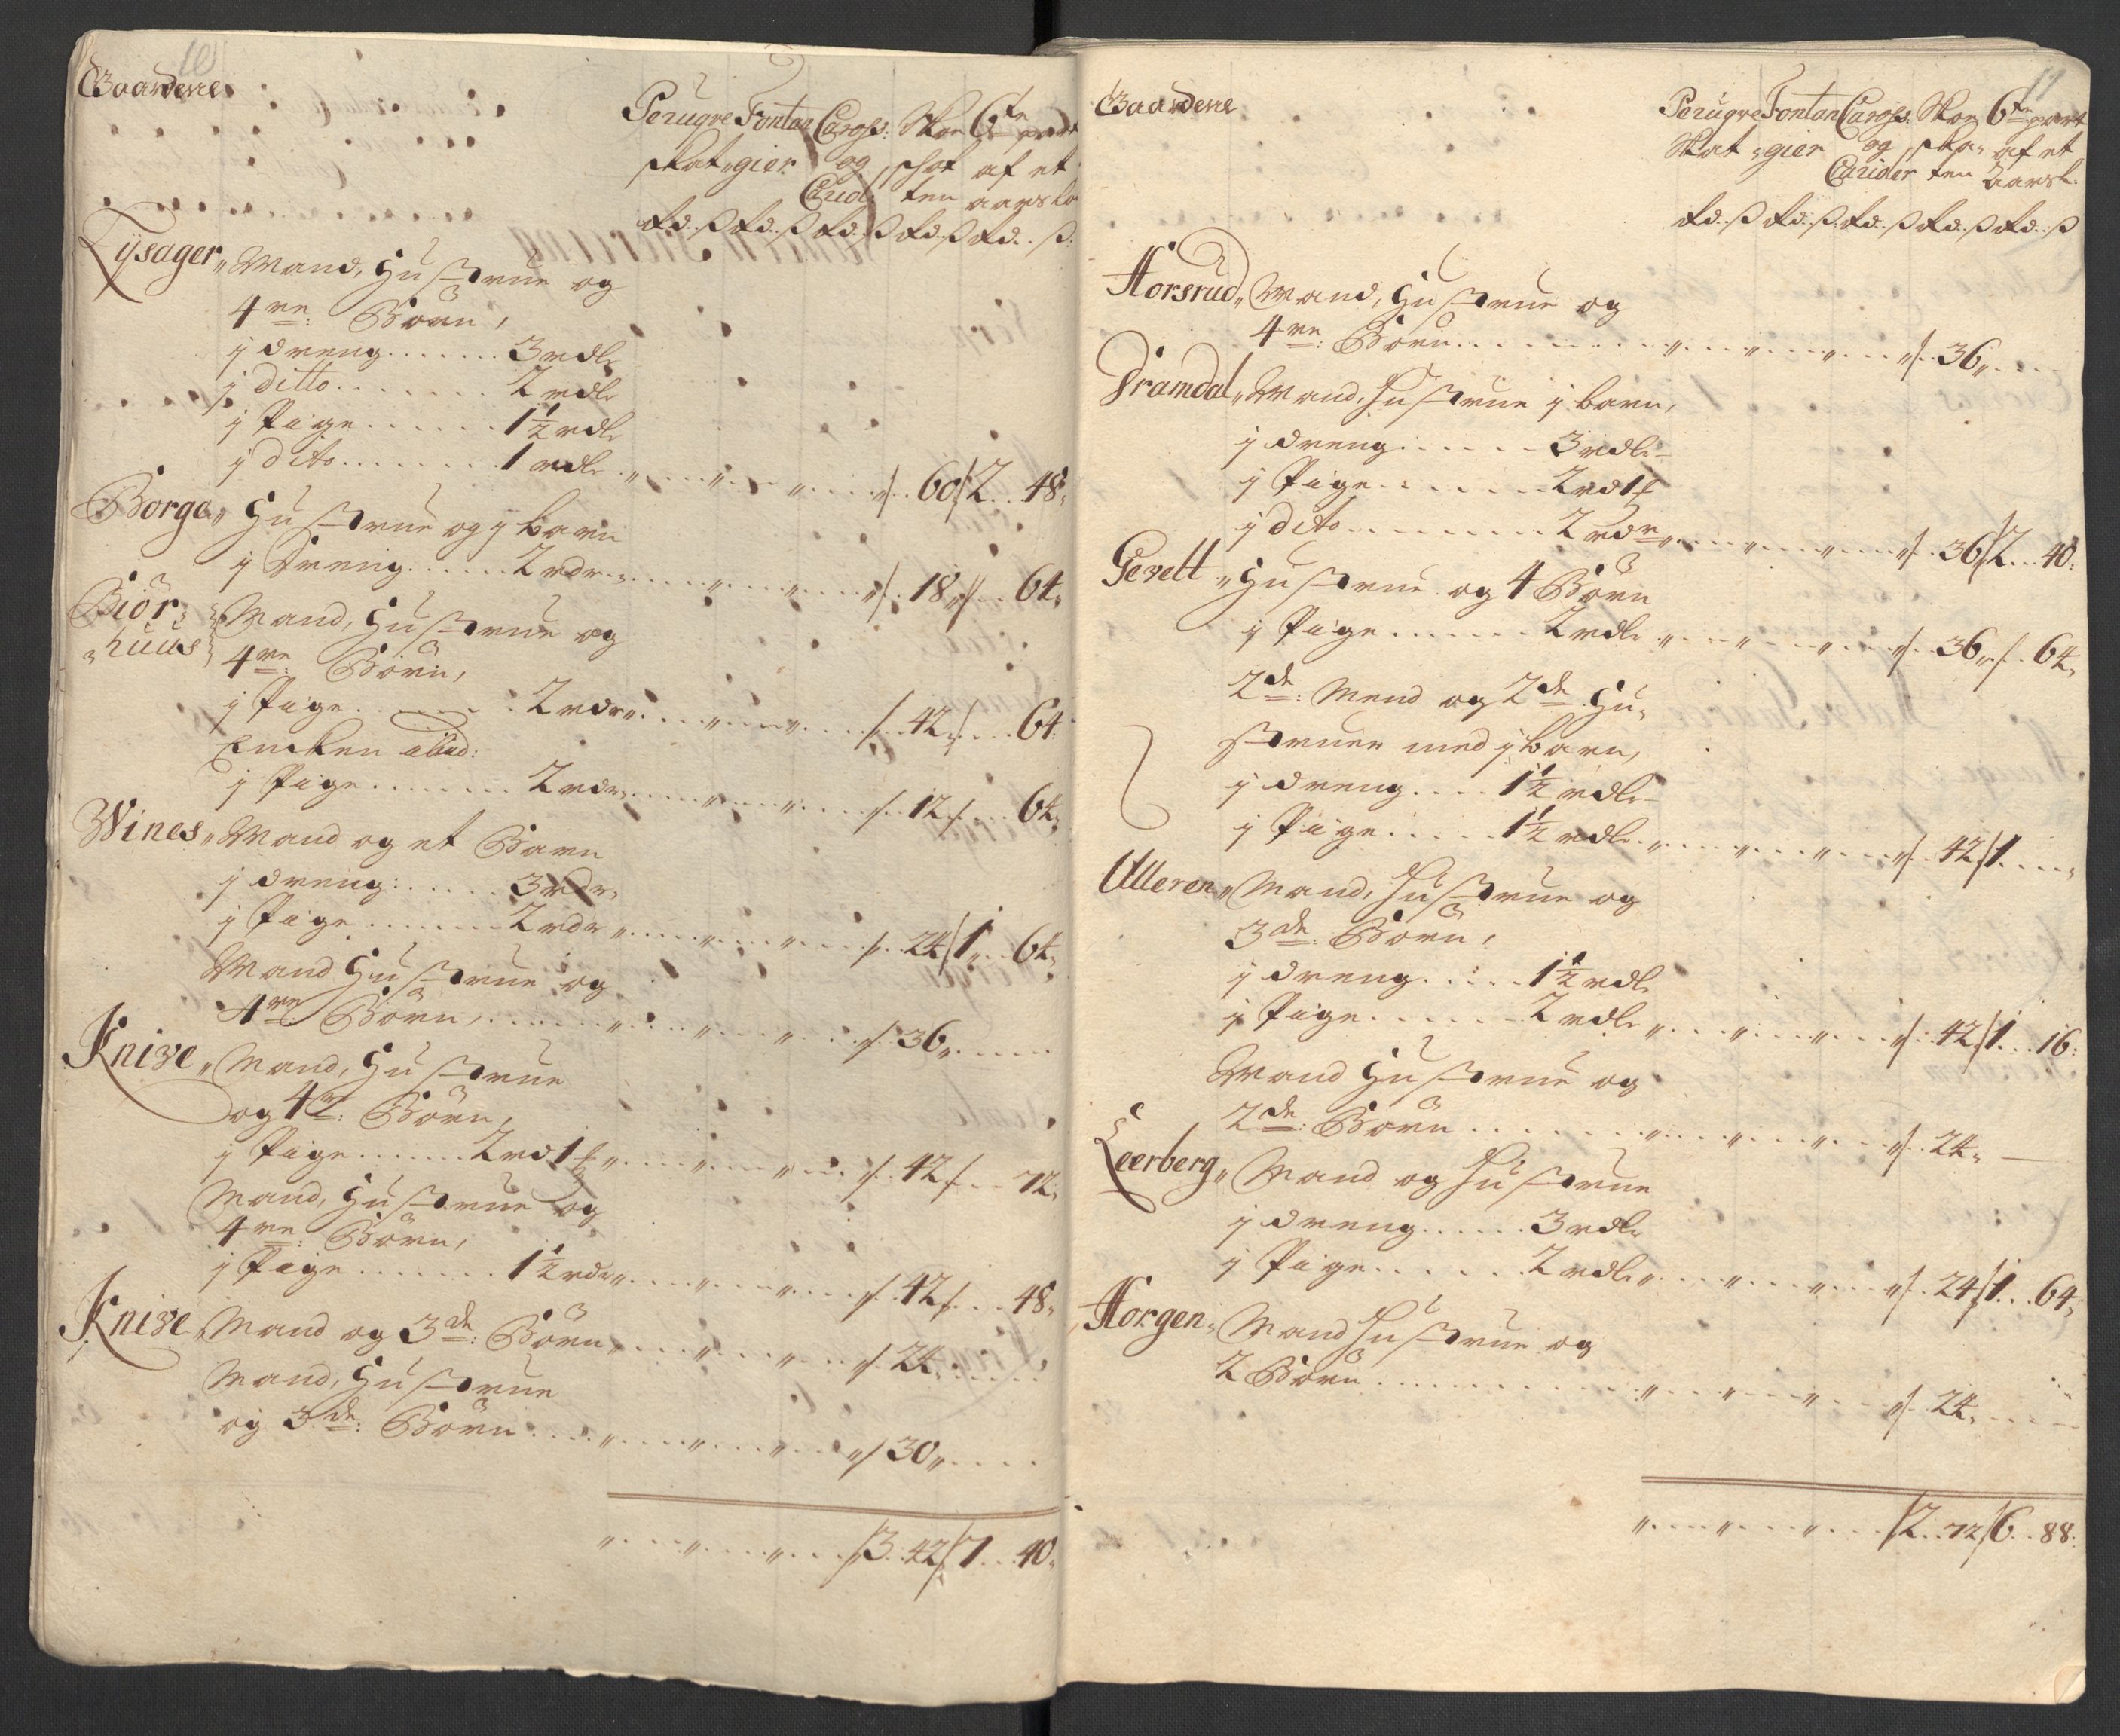 10
Gaarderne
Peruqve Fontan Caross: Skoe 6te part
skat gier og schat af et
Cud: ten aarslø
rd. ß rd. ß rd. ß rd. ß rd. ß
Lysager Mand, Hustrue og
4re: Börn,
j dreng....... 3 rdlr
j ditto....... 2 rdlr
j Pige...... 1½ rdlr
j dito....... 1 rdlr „ „ „ /. 60 / 2.. 48„
Borge„ Hustrue og j barn
j Dreng..... 2 rdr „ „ „ /. 18„ /.. 64„
Biör Mand, Hustrue og
huus 4re Börn,
j Pige....... 2 rdr „ „ „ /. 42 /... 64
Encken ibid:
j Pige....... 2 rdr „ „ „ /. 12 /... 64„
Wines„ Mand og et Barn
j dreng:..... 3 rdr
j Pige....... 2 rdr „ „ „ /. 24 / 1.. 64„
Mand Hustrue og
4re Börn,...... „ „ „ /. 36„.....
Knise„ Mand, Hustrue
og 4re: Börn,
j Pige...... 2 rd 1 ƒ „ „ „ /. 42 /... 72„
Mand, Hustrue og
4re: Börn,
j Pige....... 1½ rdr „ „ „ /. 42 /... 48„
Knise Mand og 3de: Börn „ „ „ /. 24„.....
Mand, Hustrue
og 3de: Börn.... „ „ „ / 30„....
„ „ „ / 3. 42 / 7... 40„
11
Gaarderne
Peruqve Fontan Caross: Skoe 6te part
Skat gier og ska„ af et
Carioler ten Aarsl.
rd. ß rd. ß rd. ß rd. ß rd. ß
Horsrud„ Mand, Hustrue og
4re: Börn.......... „ „ „ /. 36„....
Dramdal„ Mand, Hustrue j barn,
j dreng...... 3 rdlr
j Pige....... 2 rd 1 ƒ
j dito........ 2 rdr „ „ „ /. 36 / 2... 40:
Gevelt „ Hustrue og 4 Börn
j Pige....... 2 rdlr „ „ „ /. 36„ /.. 64„
2de: Mend og 2de Hu„
struer med j barn,
j dreng.... 1½ rdlr
j Pige..... 1½ rdlr „ „ „ /. 42 / 1....„
Ulleren„ Mand, Hustrue og
3de: Börn,
j dreng..... 1½ rdlr
j Pige....... 2 rdlr „ „ „ /. 42 / 1... 16:
Mand Hustrue og
2de: Börn...... „ „ „ /. 24„
Leerberg„ Mand og Hustrue
j dreng..... 3 rdlr
j Pige...... 2 rdlr „ „ „ /. 24 / 1... 64„
Horgen„ Mand Hustrue og
2 Börn........... „ „ „ /. 24„.....
„ „ „ / 2.. 72 / 6.. 88: